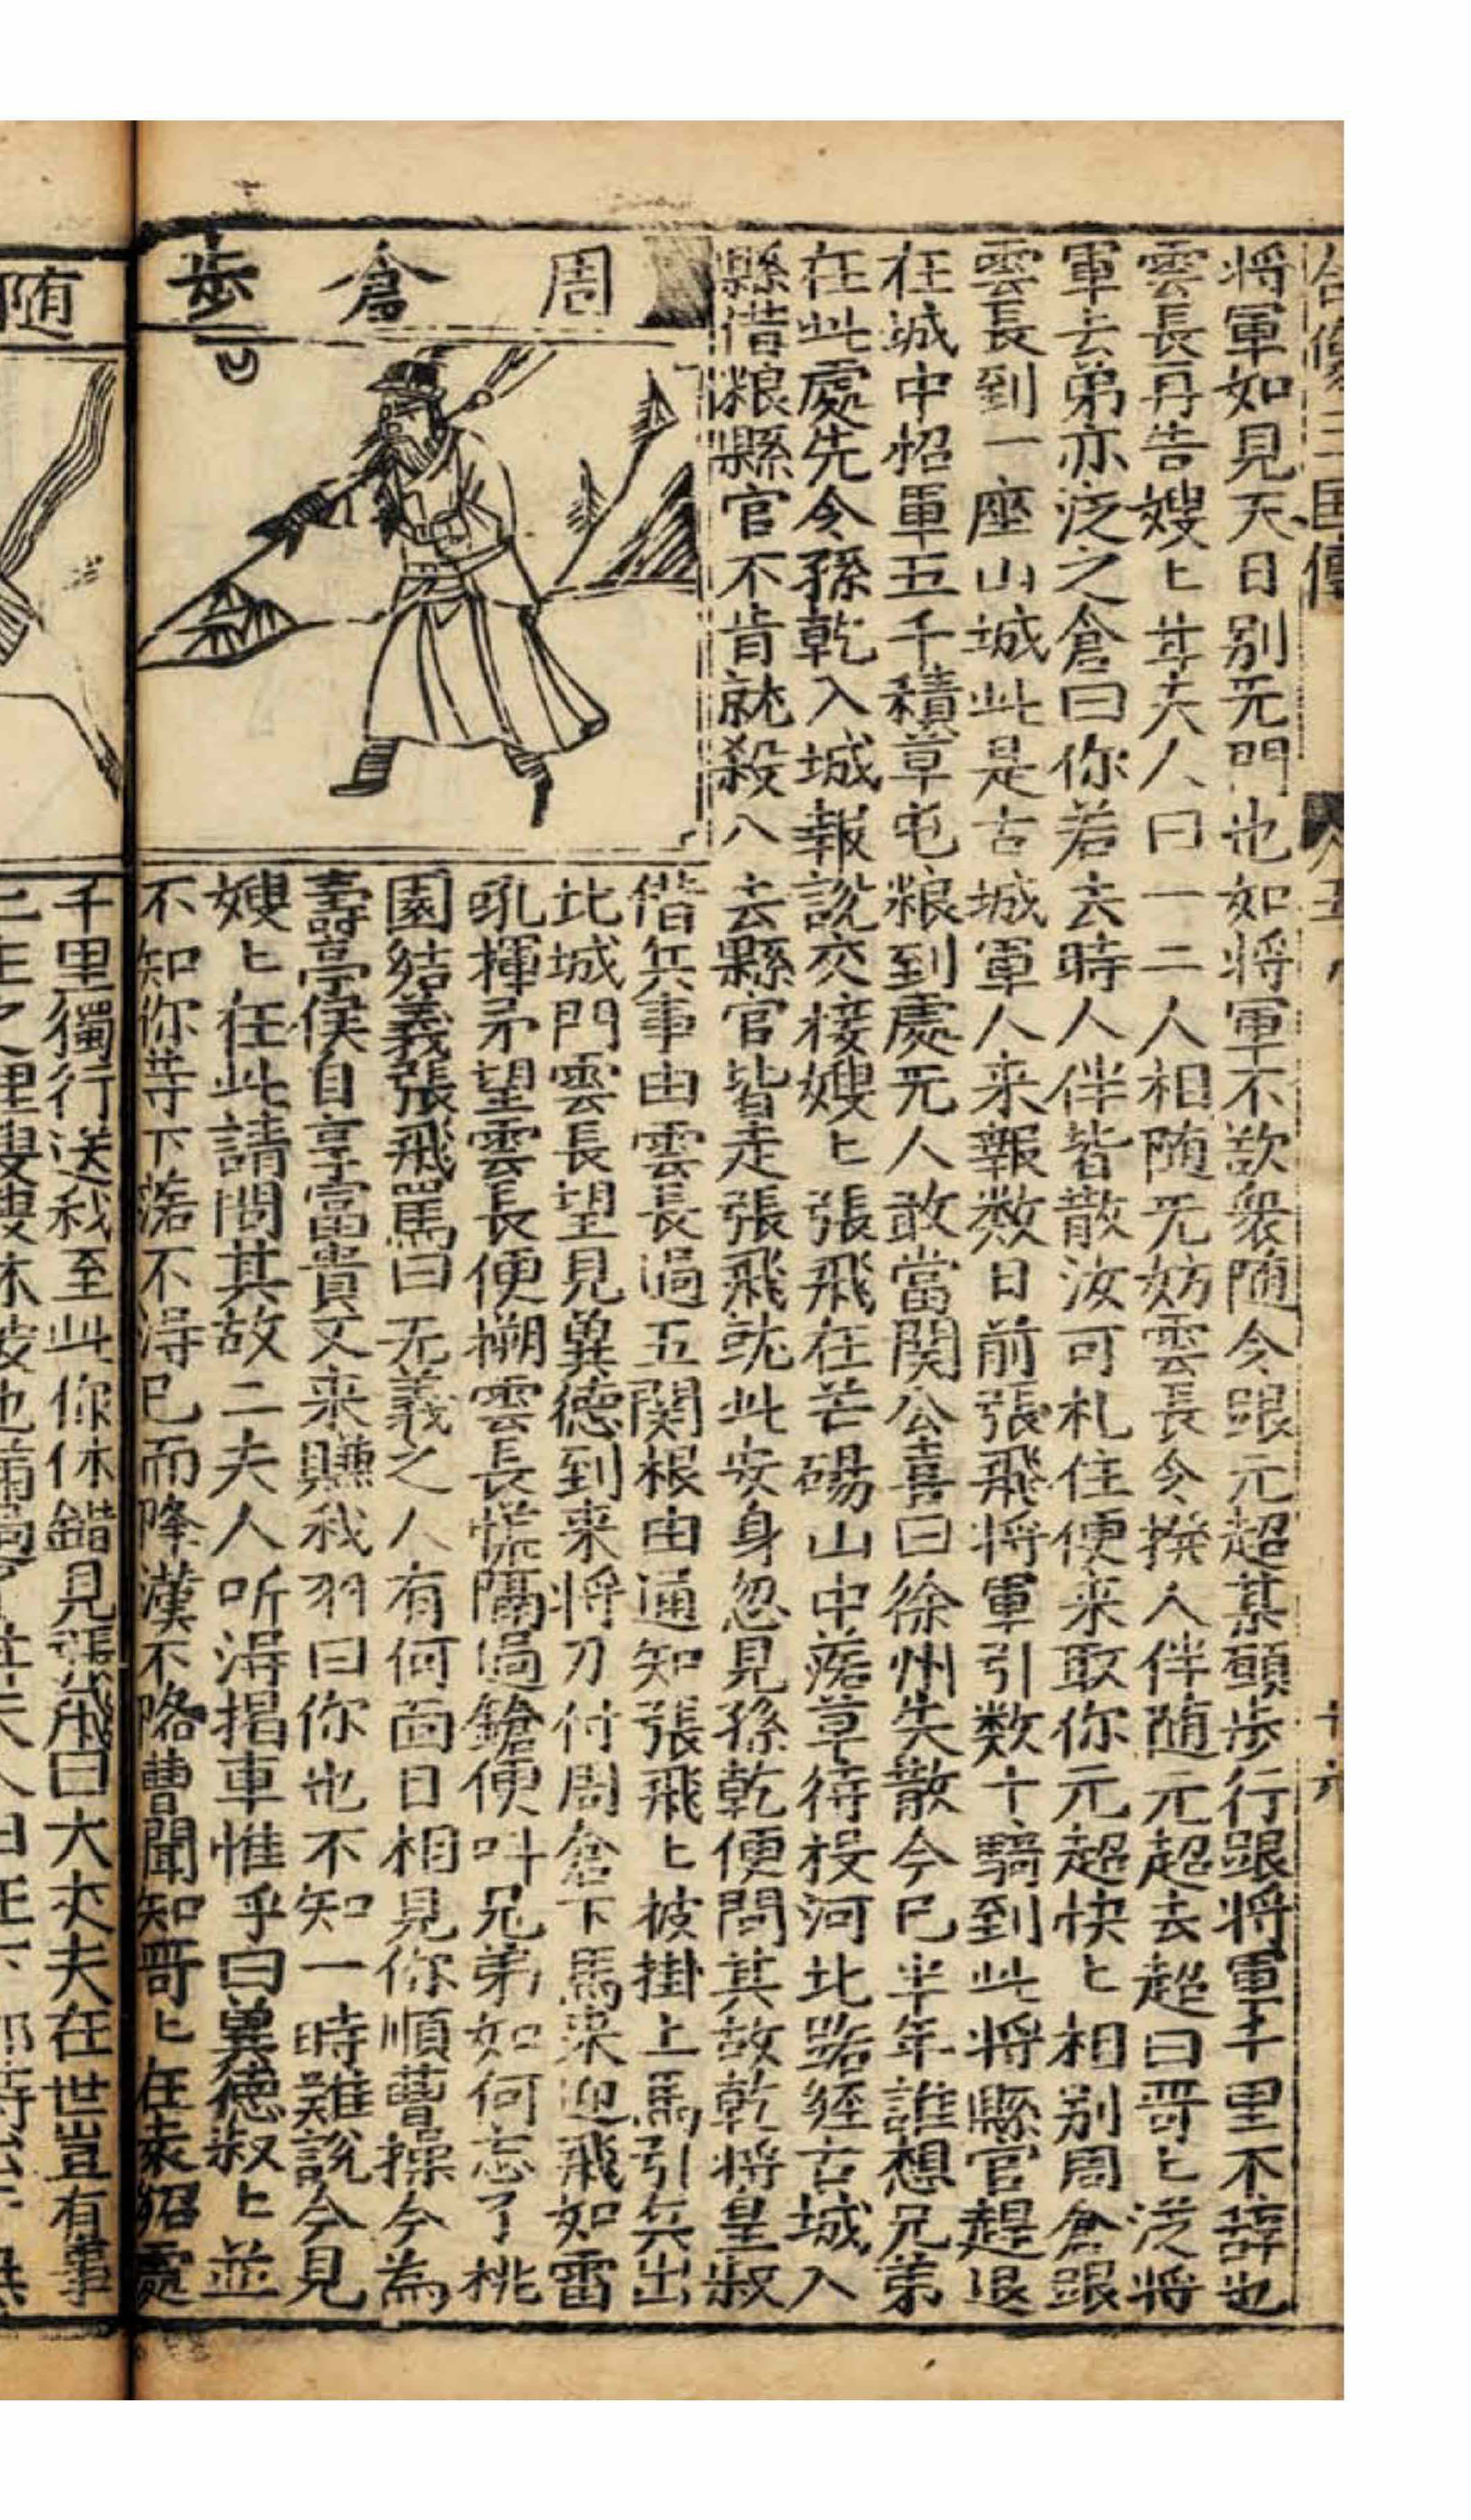 将軍如見天日别无門也如将軍不欲衆随令跟元超某願歩行跟将軍千里不辞也
雲長再告嫂〻甘夫人曰一二人相随无妨雲長令撥人伴随元超去超曰哥〻泛将
軍去弟亦泛之倉曰你若去時人伴皆散汝可札住便来取你元超快〻相别周倉跟
雲長到一座山城此是古城軍人来報数日前張飛将軍引数十騎到此将縣官趕退
在城中招軍五千積草屯粮到處无人敢當関公喜曰徐州失散今已半年誰想兄弟
在此處先令孫乾入城報說交接嫂〻張飛在芒碭山中落草待投河北路経古城入
縣借粮縣官不肯就殺入去縣官皆走張飛就此安身忽見孫乾便問其故乾将皇叔
周倉歩
借兵事由雲長過五関根由通知張飛〻披掛上馬引兵出
北城門雲長望見翼德到来将刀付周倉下馬来迎飛如雷
吼揮矛望雲長便搠雲長慌隔過鎗便叫兄弟如何忘了桃
園結義張飛罵曰无義之人有何面目相見你順曹操今為
壽亭侯自享富貴又来賺我羽曰你也不知一時難說今見
嫂〻在此請問其故二夫人听淂揭車惟乎曰翼德叔〻並
不知你等下落不淂已而降漢不降曹聞知哥〻在袁紹處
随
千里獨行送我至此你休錯見張飛曰大丈夫在世豈有事